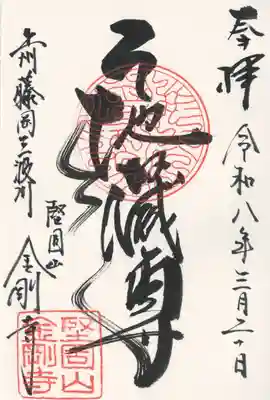 奉拝
令和八年三月二十日
地蔵尊
上州藤岡三波川
堅固山
金剛寺
堅固山
金剛寺